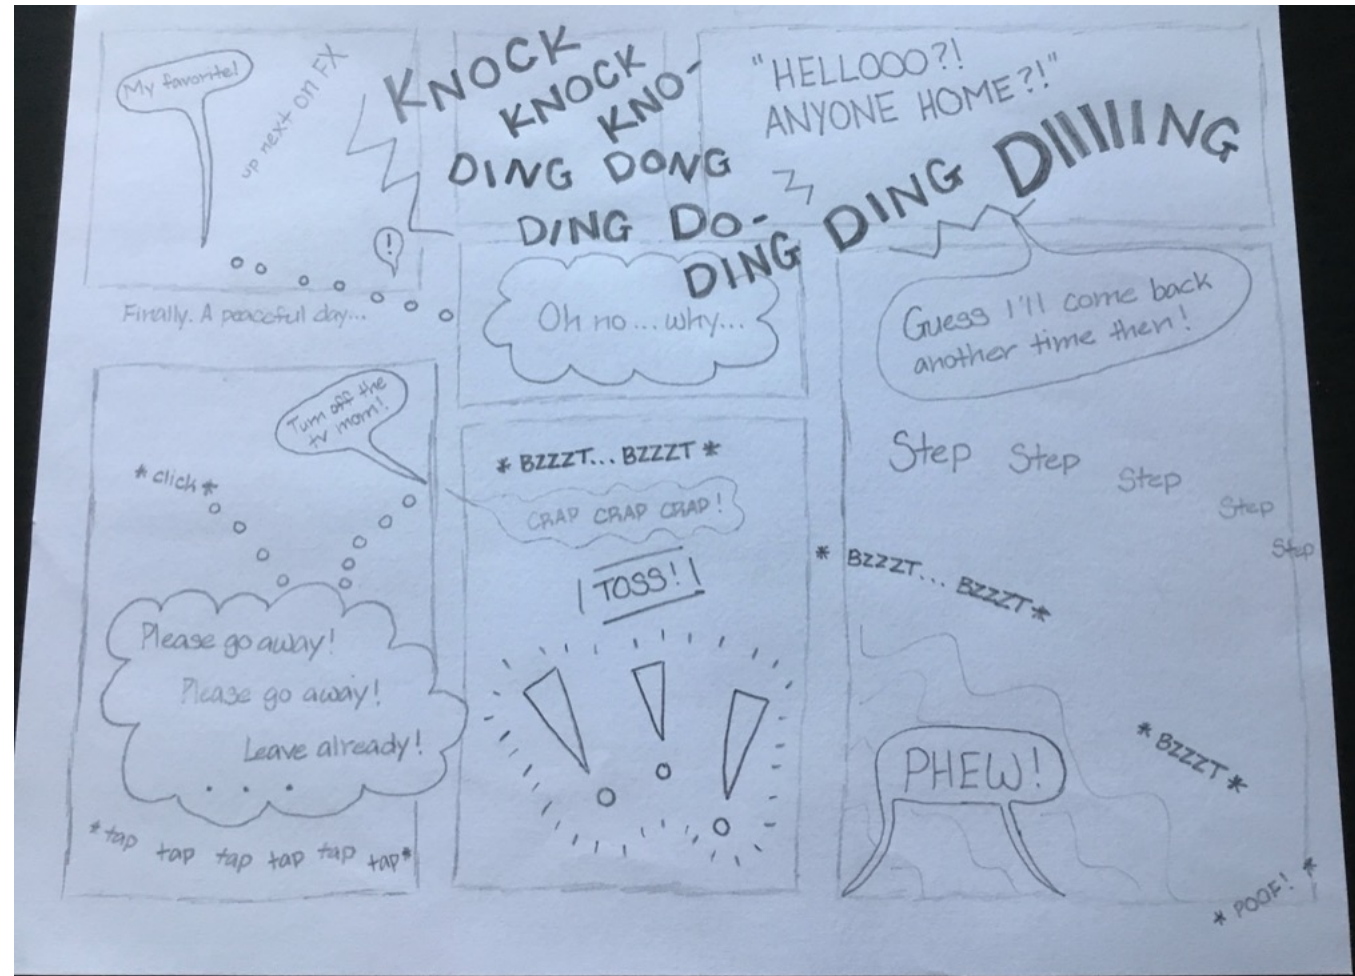 My favorite!
up next on FX
!
Finally. A peaceful day...
KNOCK
KNOCK
KNO-
DING DONG
DING DO-
DING DING DIIIIIING
"HELLOOO?!
ANYONE HOME?!"
Oh no...why...
Guess I'll come back
another time then!
Step Step Step Step Step
Turn off the
tv mom!
*click*
Please go away!
Please go away!
Leave already!
...
*tap tap tap tap tap tap*
*BZZZT... BZZZT*
CRAP CRAP CRAP!
TOSS!
! ! !
*BZZZT... BZZZT*
PHEW!
*BZZZT*
*POOF!*